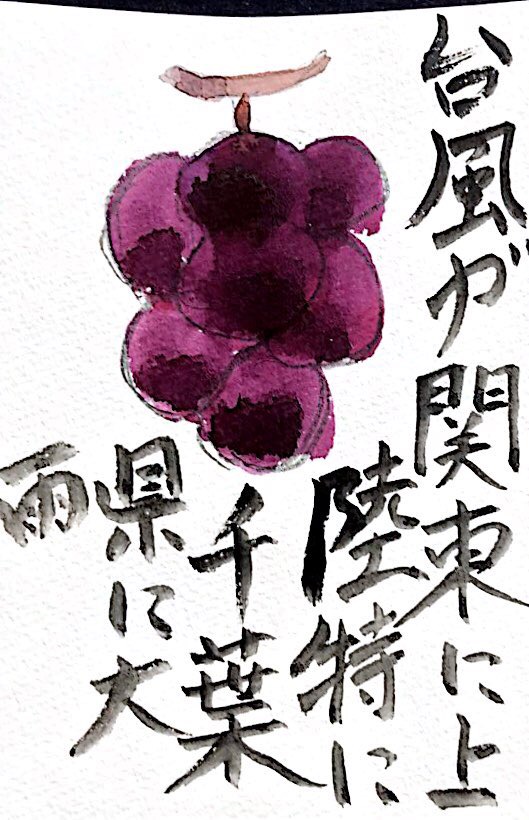 台風が関東に上
陸特に
千葉
県に大
雨